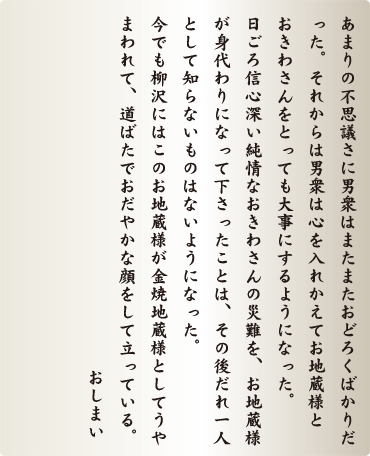 あまりの不思議さに男衆はまたまたおどろくばかりだ
った。それからは男衆は心を入れかえてお地蔵様と
おきわさんをとっても大事にするようになった。
日ごろ信心深い純情なおきわさんの災難を、お地蔵様
が身代わりになって下さったことは、その後だれ一人
として知らないものはないようになった。
今でも柳沢にはこのお地蔵様が金焼地蔵様としてうや
まわれて、道ばたでおだやかな顔をして立っている。
おしまい